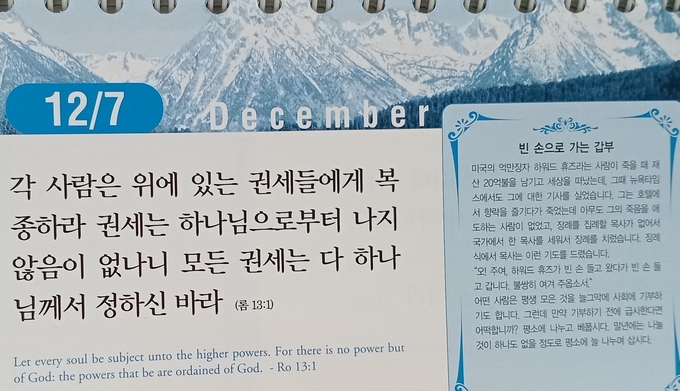 12/7
December
각 사람은 위에 있는 권세들에게 복
종하라 권세는 하나님으로부터 나지
않음이 없나니 모든 권세는 다 하나
님께서 정하신 바라 (롬 13:1)
Let every soul be subject unto the higher powers. For there is no power but
of God: the powers that be are ordained of God. - Ro 13:1
빈 손으로 가는 갑부
미국의 억만장자 하워드 휴즈라는 사람이 죽을 때 재
산 20억불을 남기고 세상을 떠났는데, 그때 뉴욕타임
스에서도 그에 대한 기사를 실었습니다. 그는 호텔에
서 향락을 즐기다가 죽었는데 아무도 그의 죽음을 애
도하는 사람이 없었고, 장례를 집례할 목사가 없어서
국가에서 한 목사를 세워서 장례를 치렀습니다. 장례
식에서 목사는 이런 기도를 드렸습니다.
"오! 주여, 하워드 휴즈가 빈 손 들고 왔다가 빈 손 들
고 갑니다. 불쌍히 여겨 주옵소서."
어떤 사람은 평생 모은 것을 늘그막에 사회에 기부하
기도 합니다. 그런데 만약 기부하기 전에 급사한다면
어떡합니까? 평소에 나누고 베풉시다. 말년에는 나눌
것이 하나도 없을 정도로 평소에 늘 나누며 삽시다.